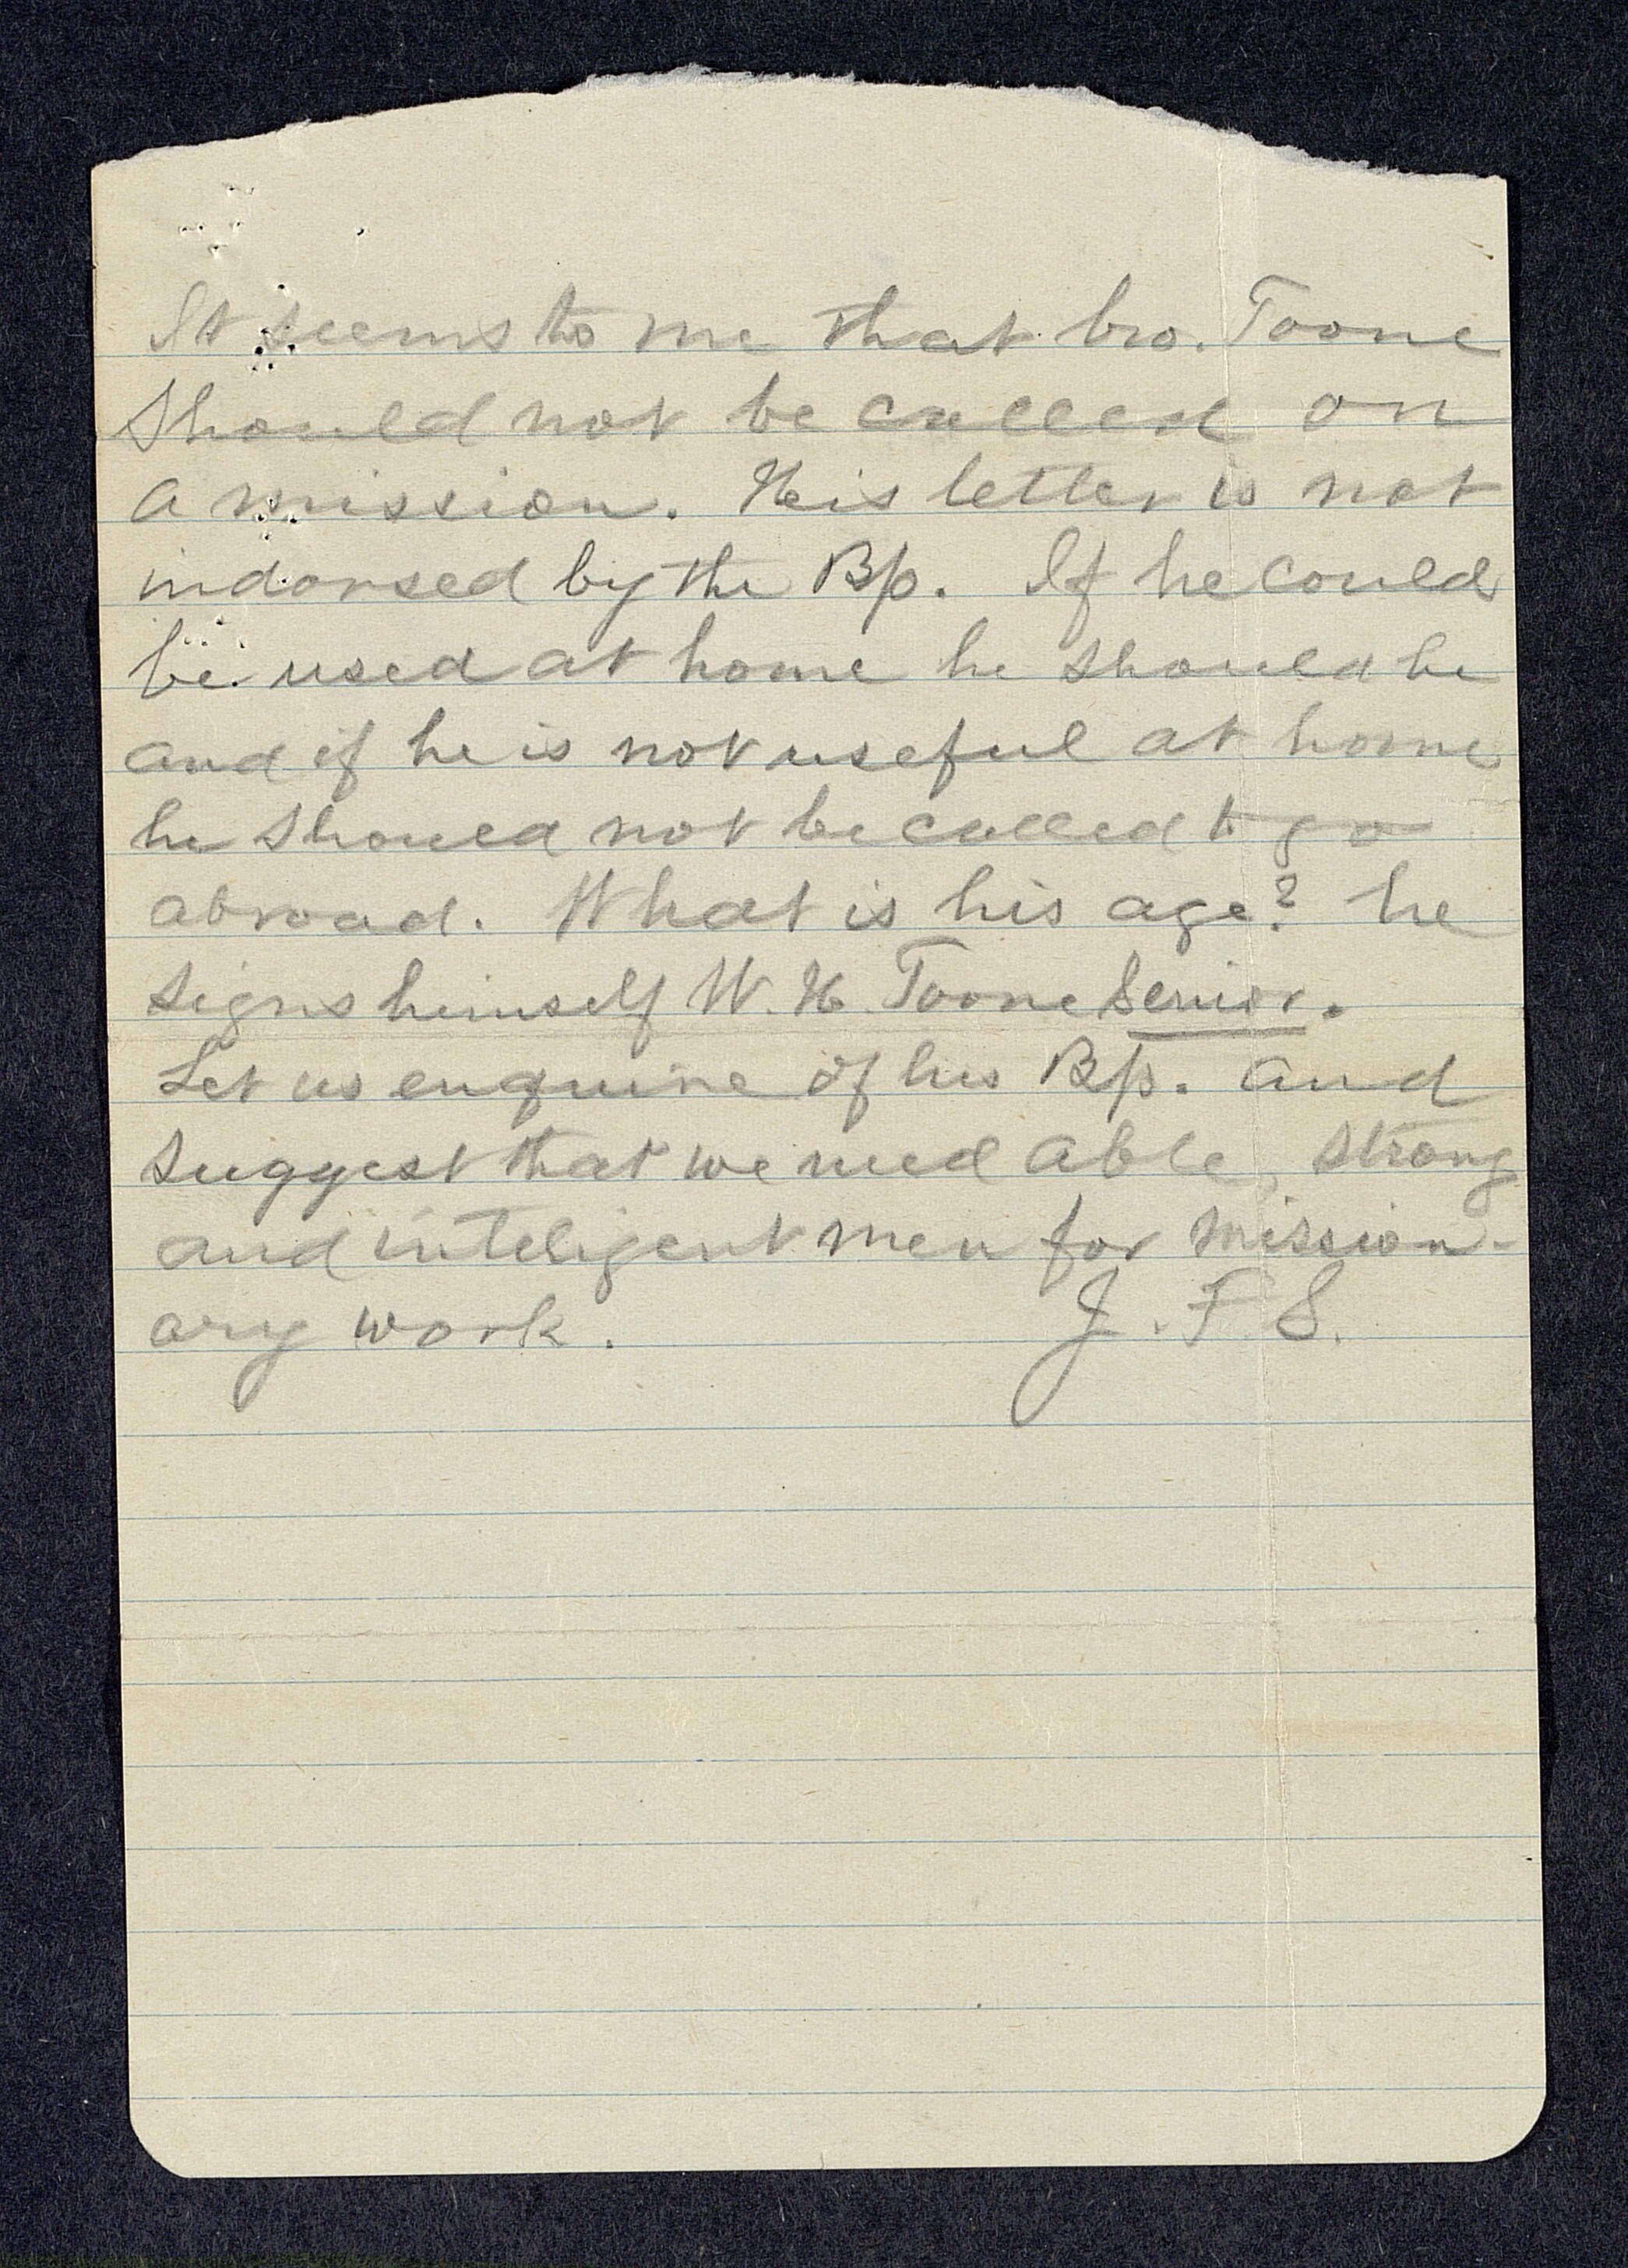 It seems to me that bro. Toone
should not be called on
a mission. His letter is not
indorsed by the Bp. If he could
be used at home he should be
and if he is not useful at home
he should not be called to go
abroad. What is his age? he
signs himself W. H. Toone Senior.
Let us enquire of his Bp. and
suggest that we need able, strong
and inteligent men for mission-
ary work. J. F. S.